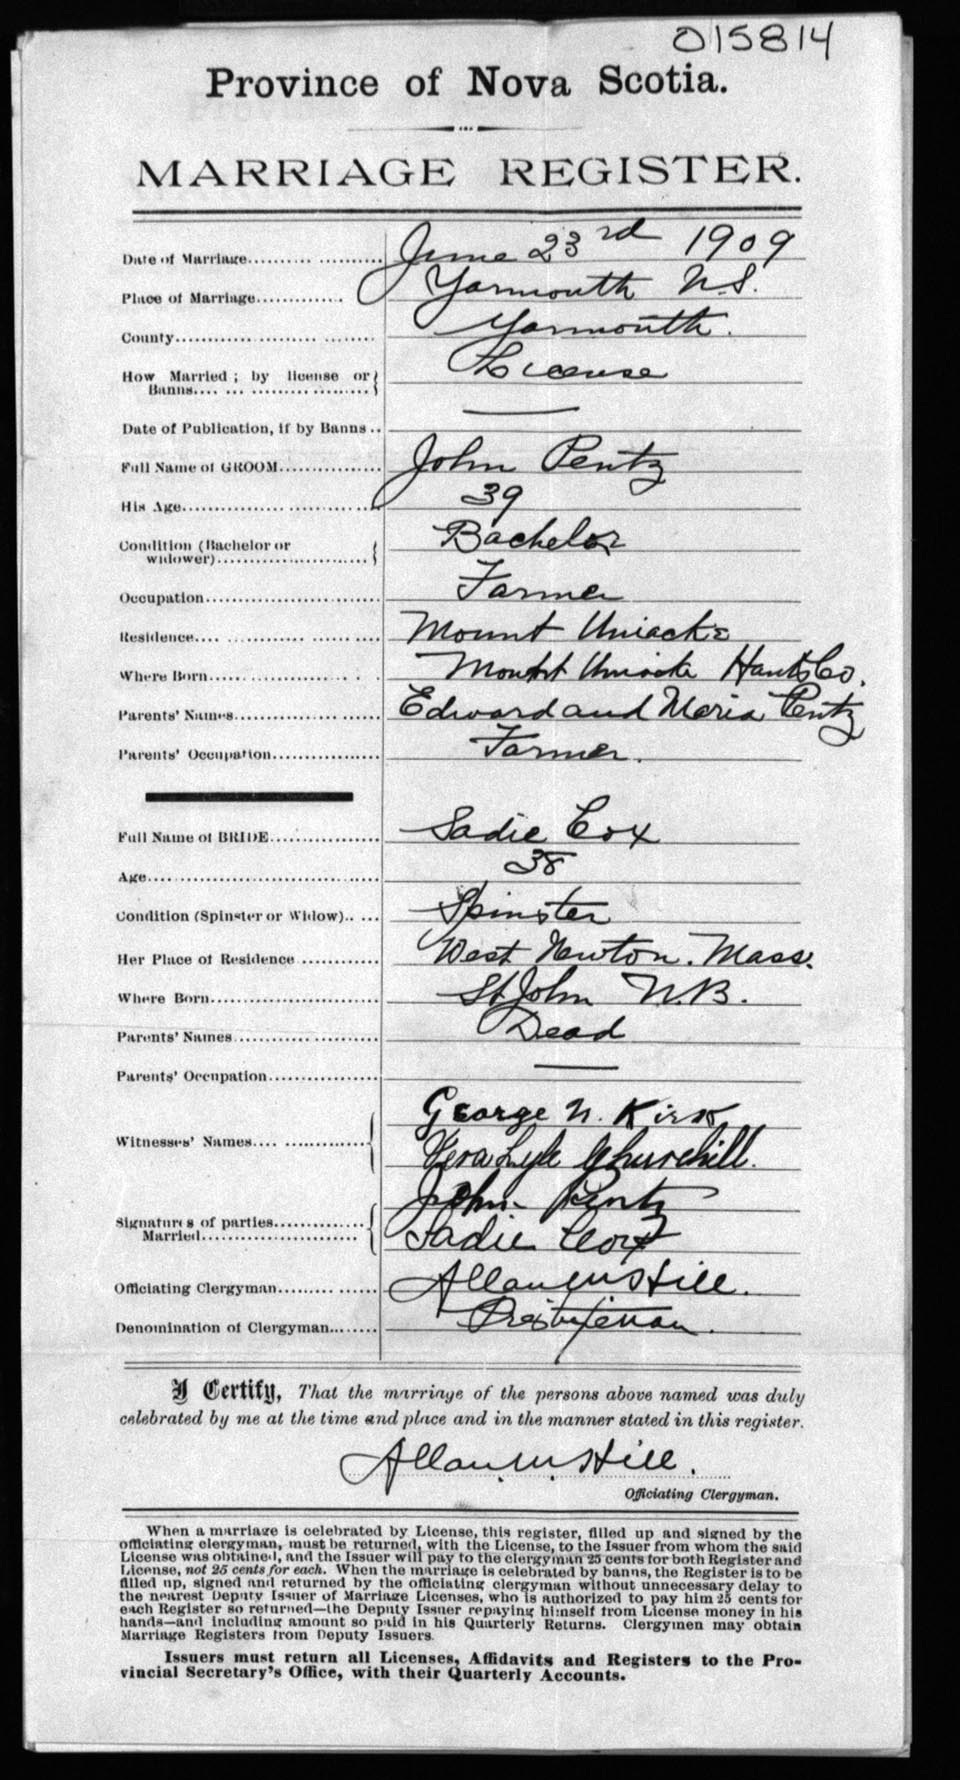 015814
Province of Nova Scotia.
MARRIAGE REGISTER.
Date of Marriage.................... June 23rd 1909
Place of Marriage............. Yarmouth N.S.
County.............................. Yarmouth.
How Married; by license or License
Banns.... ... .......... .........
Date of Publication, if by Banns .. —
Full Name of GROOM............... John Pentz
His Age............................. 39
Condition (Bachelor or Bachelor
widower).......................
Occupation.......................... Farmer
Residence.... ........... .......... Mount Uniacke
Where Born...... ............. . . Mount Uniacke Hants Co.
Parents' Names..................... Edward and Maria Pentz
Parents' Occupation................ Farmer.
Full Name of BRIDE................ Sadie Cox
Age................................. 38
Condition (Spinster or Widow).. ... Spinster
Her Place of Residence ............ West Newton. Mass.
Where Born......................... St John N.B.
Parents' Names..................... Dead
Parents' Occupation................ —
George N. Kirk
Witnesses' Names.... ..............
Vera Lyle Churchill.
John Pentz
Signatures of parties..............
Married....................... Sadie Cox
Officiating Clergyman......... ...... Allan W Hill.
Denomination of Clergyman........ Presbyterian.
I Certify, That the marriage of the persons above named was duly
celebrated by me at the time and place and in the manner stated in this register.
Allan. W. Hill.
Officiating Clergyman.
When a marriage is celebrated by License, this register, filled up and signed by the
officiating clergyman, must be returned, with the License, to the Issuer from whom the said
License was obtained, and the Issuer will pay to the clergyman 25 cents for both Register and
License, not 25 cents for each. When the marriage is celebrated by banns, the Register is to be
filled up, signed and returned by the officiating clergyman without unnecessary delay to
the nearest Deputy Issuer of Marriage Licenses, who is authorized to pay him 25 cents for
each Register so returned—the Deputy Issuer repaying himself from License money in his
hands—and including amount so paid in his Quarterly Returns. Clergymen may obtain
Marriage Registers from Deputy Issuers.
Issuers must return all Licenses, Affidavits and Registers to the Pro-
vincial Secretary's Office, with their Quarterly Accounts.